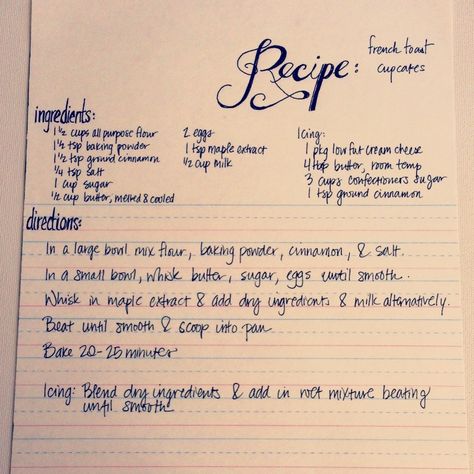 Recipe: french toast
cupcakes
ingredients:
1 1/2 cups all purpose flour
1 1/2 tsp baking powder
1 1/2 tsp ground cinnamon
1/4 tsp salt
1 cup sugar
1/2 cup butter, melted & cooled
2 eggs
1 tsp maple extract
1/2 cup milk
Icing:
1 pkg lowfat cream cheese
4 tbsp butter, room temp
3 cups confectioners sugar
1 tsp ground cinnamon
directions:
In a large bowl mix flour, baking powder, cinnamon, & salt.
In a small bowl, whisk butter, sugar, eggs until smooth.
Whisk in maple extract & add dry ingredients & milk alternatively.
Beat until smooth & scoop into pan.
Bake 20-25 minutes
Icing: Blend dry ingredients & add in wet mixture beating
until smooth